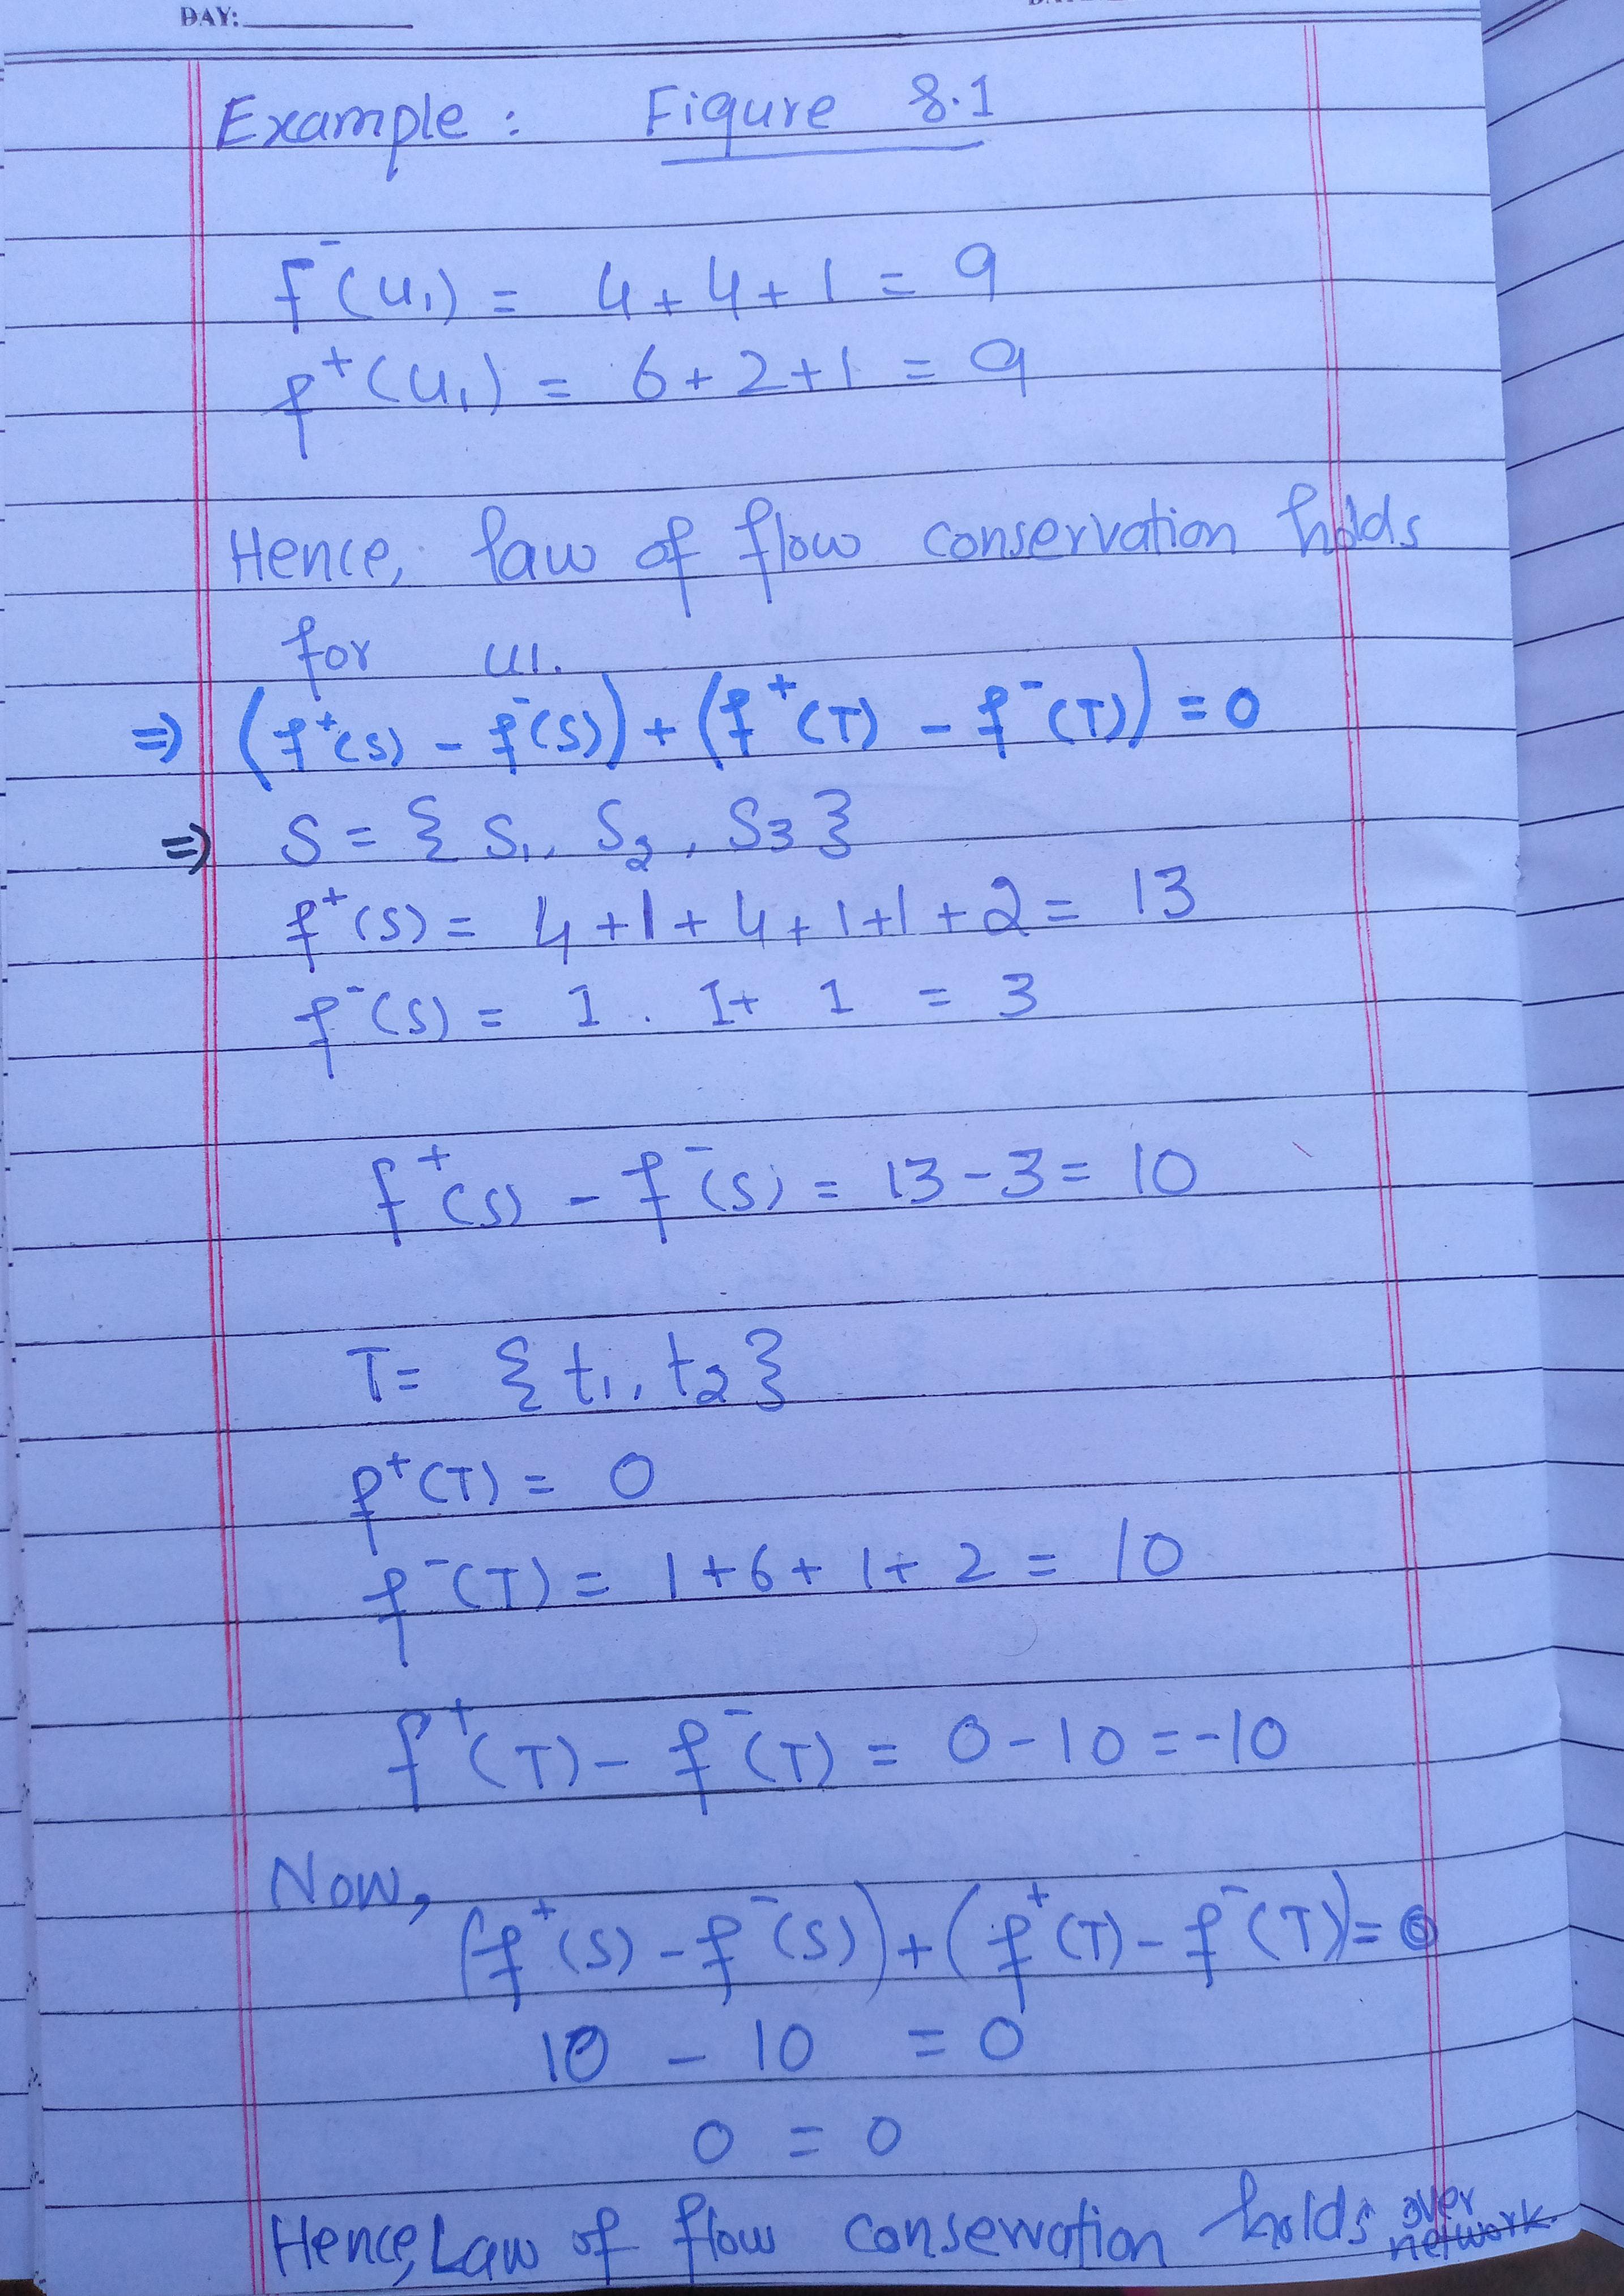 DAY:
Example : Figure 8.1
f⁻(u₁) = 4 + 4 + 1 = 9
f⁺(u₁) = 6 + 2 + 1 = 9
Hence, law of flow conservation holds
for u1.
⇒ (f⁺(S) - f⁻(S)) + (f⁺(T) - f⁻(T)) = 0
⇒ S = { S₁, S₂, S3 }
f⁺(S) = 4 + 1 + 4 + 1 + 1 + 2 = 13
f⁻(S) = 1 . 1 + 1 = 3
f⁺(S) - f⁻(S) = 13 - 3 = 10
T = { t₁, t₂ }
f⁺(T) = 0
f⁻(T) = 1 + 6 + 1 + 2 = 10
f⁺(T) - f⁻(T) = 0 - 10 = -10
Now,
(f⁺(S) - f⁻(S)) + (f⁺(T) - f⁻(T)) = 0
10 - 10 = 0
0 = 0
Hence, Law of flow conservation holds over network.